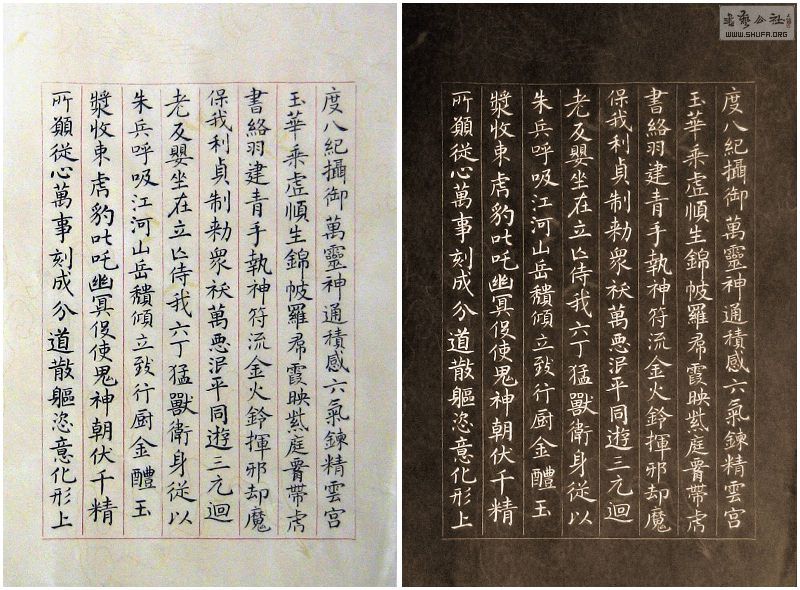 度八紀攝御萬靈神通積感六氣鍊精雲宮
玉華乘虛順生錦帔羅帬霞映紫庭腎帶虎
書絡羽建青手執神符流金火鈴揮邪却魔
保我利貞制勑衆祅萬惡泯平同遊三元迴
老反嬰坐在立亡侍我六丁猛獸衛身從以
朱兵呼吸江河山岳穨傾立致行厨金醴玉
漿收束虎豹叱吒幽冥役使鬼神朝伏千精
所願從心萬事刻成分道散軀恣意化形上
書藝公社
WWW.SHUFA.ORG
度八紀攝御萬靈神通積感六氣鍊精雲宮
玉華乘虛順生錦帔羅帬霞映紫庭腎帶虎
書絡羽建青手執神符流金火鈴揮邪却魔
保我利貞制勑衆祅萬惡泯平同遊三元迴
老反嬰坐在立亡侍我六丁猛獸衛身從以
朱兵呼吸江河山岳穨傾立致行厨金醴玉
漿收束虎豹叱吒幽冥役使鬼神朝伏千精
所願從心萬事刻成分道散軀恣意化形上